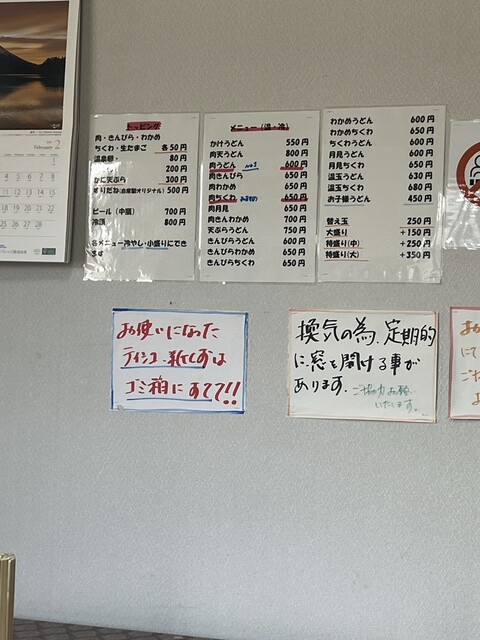 February
2
トッピング
肉・きんぴら・わかめ
ちくわ・生たまご 各50円
温泉卵・ 80円
200円
かに天ぷら 300円
すりだね(自家製オリジナル) 500円
ビール(中瓶) 700円
冷酒 800円
各メニュー冷やし・小盛りにでき
ます
メニュー(温・冷)
かけうどん 550円
肉天うどん 800円
肉うどん No1 600円
肉きんぴら 650円
肉わかめ 650円
肉ちくわ 650円
肉月見 650円
肉きんわかめ 700円
天ぷらうどん 750円
きんぴらうどん 600円
きんぴらわかめ 650円
きんぴらちくわ 650円
わかめうどん 600円
わかめちくわ 650円
ちくわうどん 600円
月見うどん 600円
月見ちくわ 650円
温玉うどん 630円
温玉ちくわ 680円
お子様うどん 450円
替え玉 250円
大盛り +150円
特盛り(中) +250円
特盛り(大) +350円
お使いになった
ティッシュ・紙くずは
ゴミ箱にすてて!!
換気の為、定期的
に窓を開ける事が
あります。
ご協力お願い
いたします。